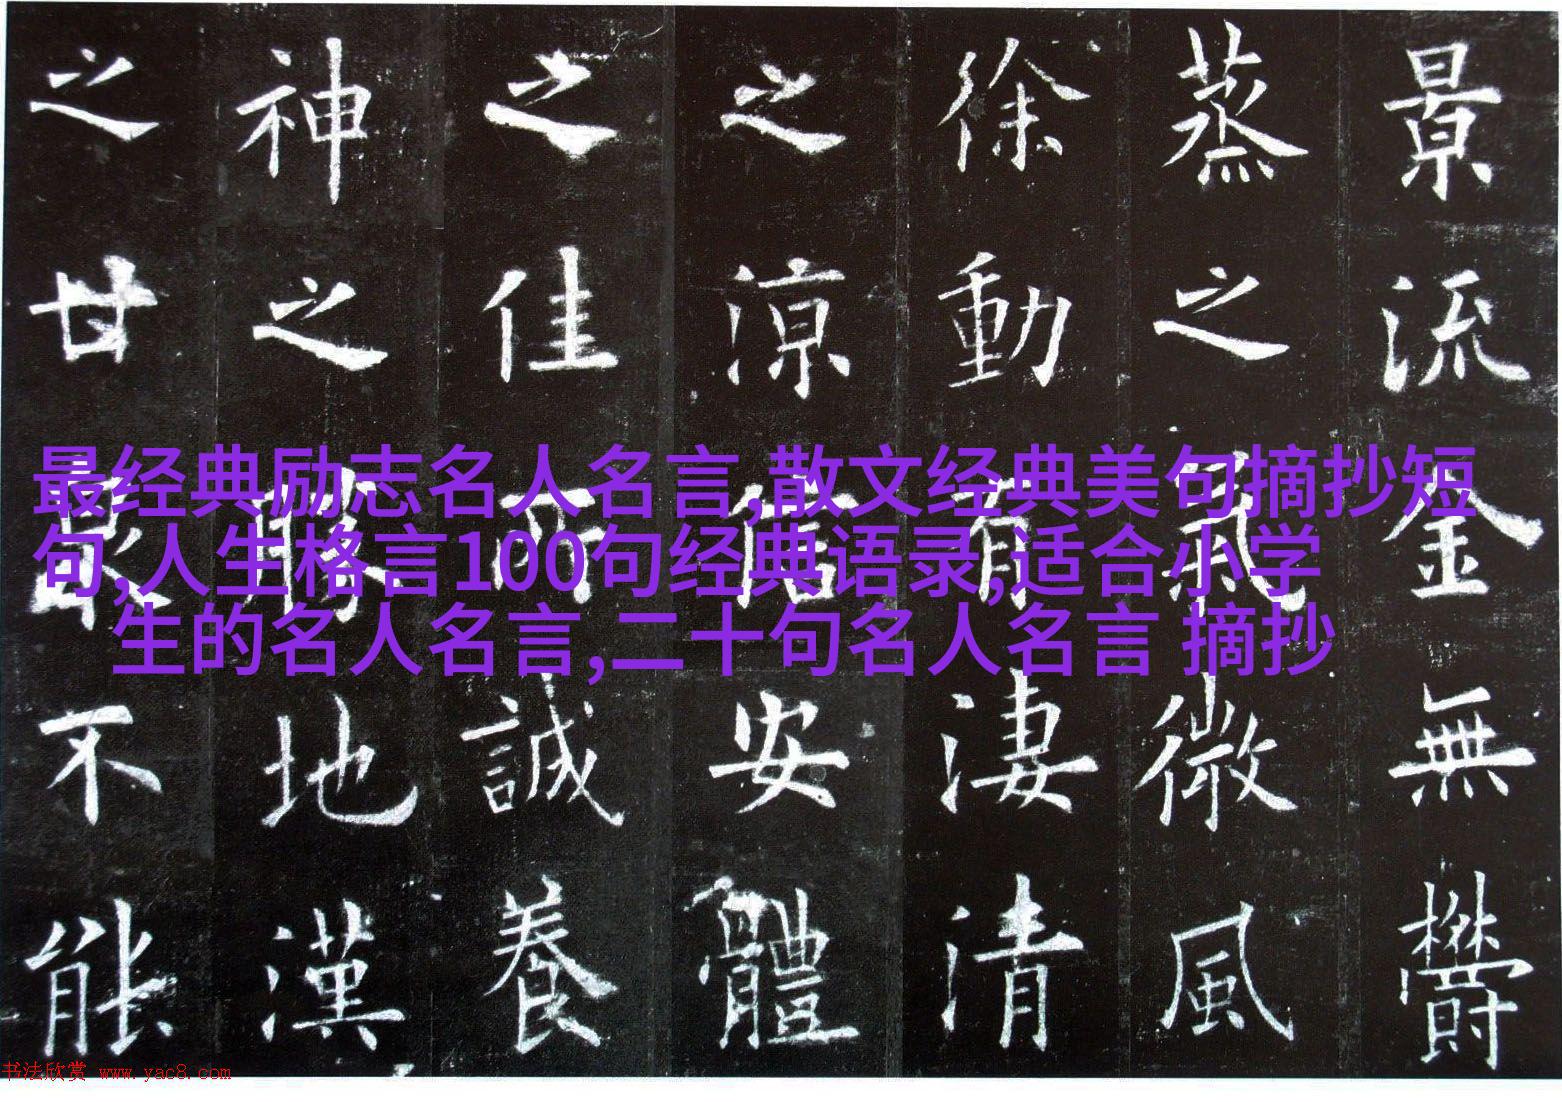 景流金無鬱
蒸之氣微風
徐動有淒清
之涼信安體
之佳所誠養
神之勝地漢
之甘泉不能
最经典励志名人名言,散文经典美句摘抄短
句,人生格言100句经典语录,适合小学
生的名人名言,二十句名人名言 摘抄
书法欣赏 www.yac8.com